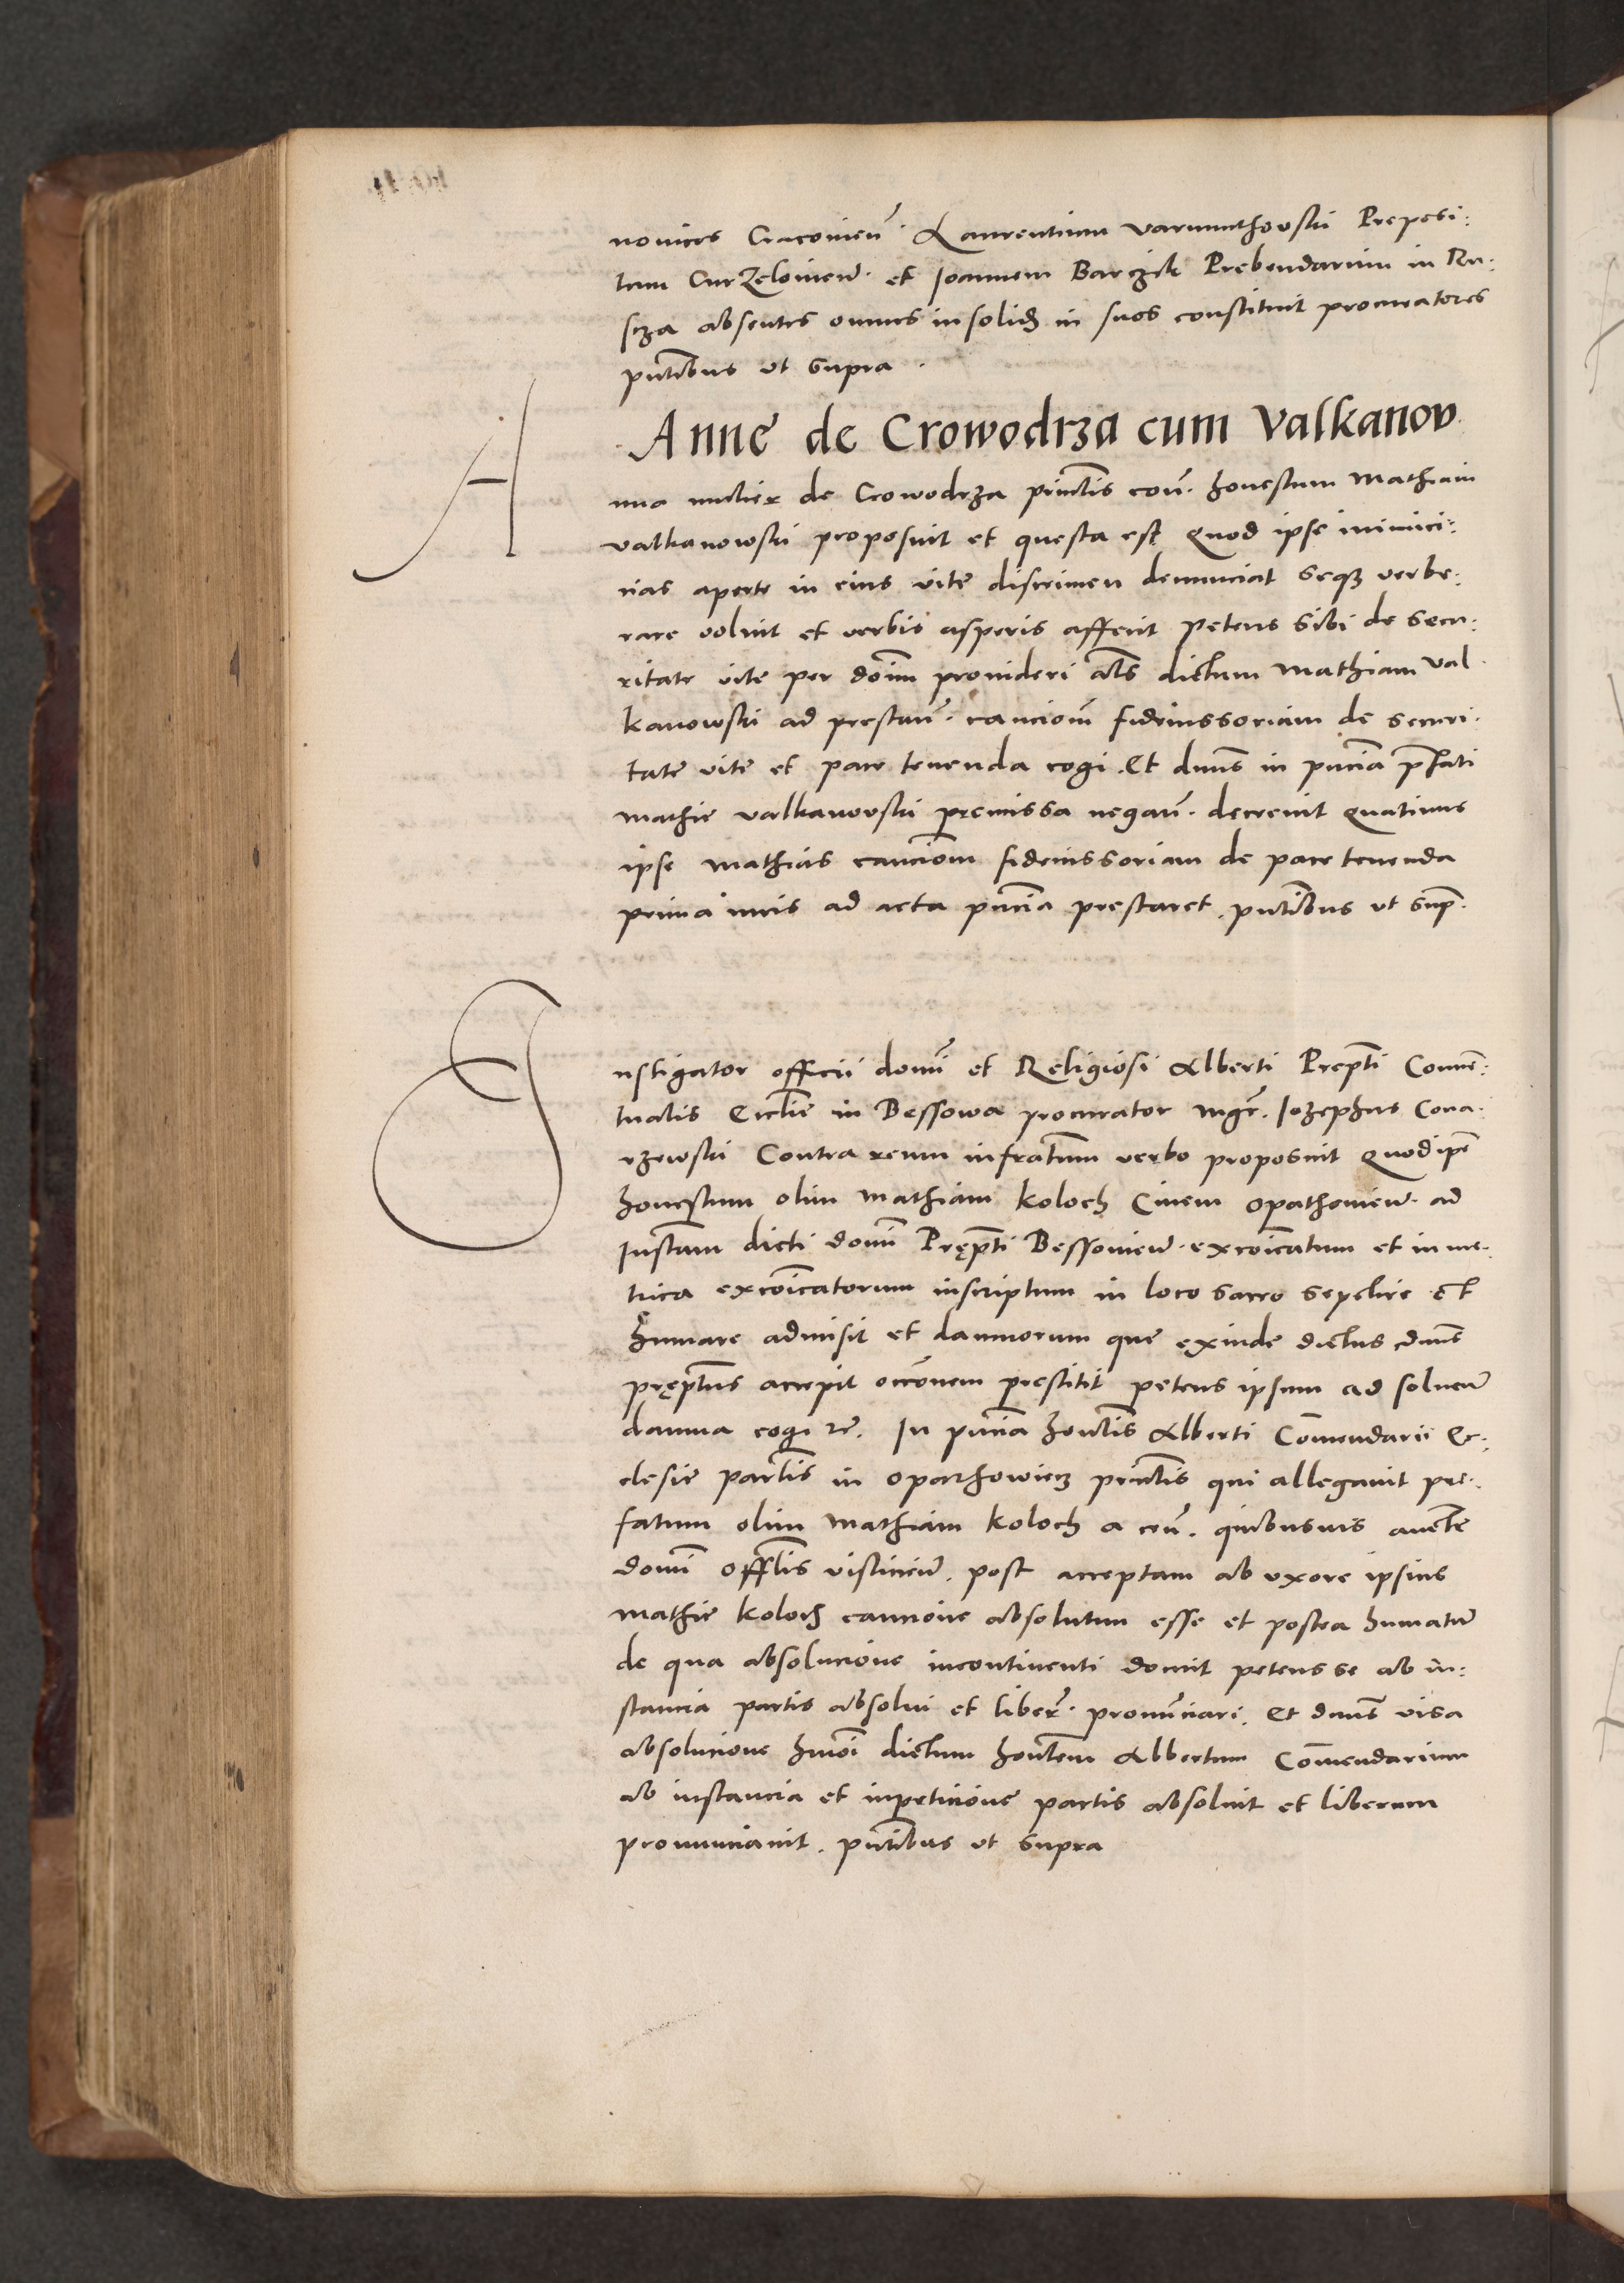 nonices Cracovien̄. Laurentium Varmunthovski Preposi:
tum Curzelovien̄. et Joannem Barczik Prebendarium in Ru:
scza absentes omnes in solid̄ in suos constituit procuratores
pn̄tibus ut supra.
Anne de Crowodrza cum Valkanov
Anna mulier de Crowodrza prin̄clis con̄. honestum Mathiam
Valkanowski proposuit et questa est Quod ipse inimici:
cias aperte in eius vite discrimen denunciat seq3 verbe:
rare voluit et verbis asperis affecit Petens sibi de secu:
ritate vite per dōim provideri als̄ dictum Mathiam Val
kanowski ad prestan̄. caucionē fideiussoriam de securi:
tate vite et pace tenenda cogi. Et dnūs in pn̄cia p̄fati
Mathie Valkanovski premissa negan̄. decrevit Quatinus
ipse Mathias caucionē fideiussoriam de pace tenenda
prima iuris ad acta pn̄cia prestaret. pn̄tibus ut sup̄.
Instigator officii domī et Religiosi Alberti Prep̄ti Conven̄:
tualis Ecclīe in Bessowa procurator Mgr̄. Jozephus Cona:
rzewski Contra reum infrātum verbo proposuit Quod ip̄e
honestum olim Mathiam Koloch Civem Opathovien̄. ad
Instām dicti domī Pręp̄ti Bessovien̄. excōicatum et in me:
trica excōicatorum inscriptum in loco sacro sepelire et
humare admisit et damnorum que exinde dictus dnūs
pręp̄tus accepit occōnem prestitit petens ipsum ad solven̄
damna cogi rē. In pn̄cia hon̄clis Alberti Com̄endarii Ec:
clesie parlis̄ in Opathowiecz prin̄clis qui allegavit pre:
fatum olim Mathiam Koloch a cen̄. quibusvis auc̄te
domī Offlis̄ Vislicien̄. post acceptam ab uxore ipsius
Mathie Koloch caucione absolutum esse et postea humatum̄
de qua absolucione incontinenti docuit petens se ab in:
stancia partis absolvi et liber̄. pronun̄ciari. Et dnūs visa
absolucione hmōi dictum hon̄lem Albertum Com̄endarium
ab instancia et inpeticione partis absolvit et liberum
pronunciavit. pn̄tibus ut supra